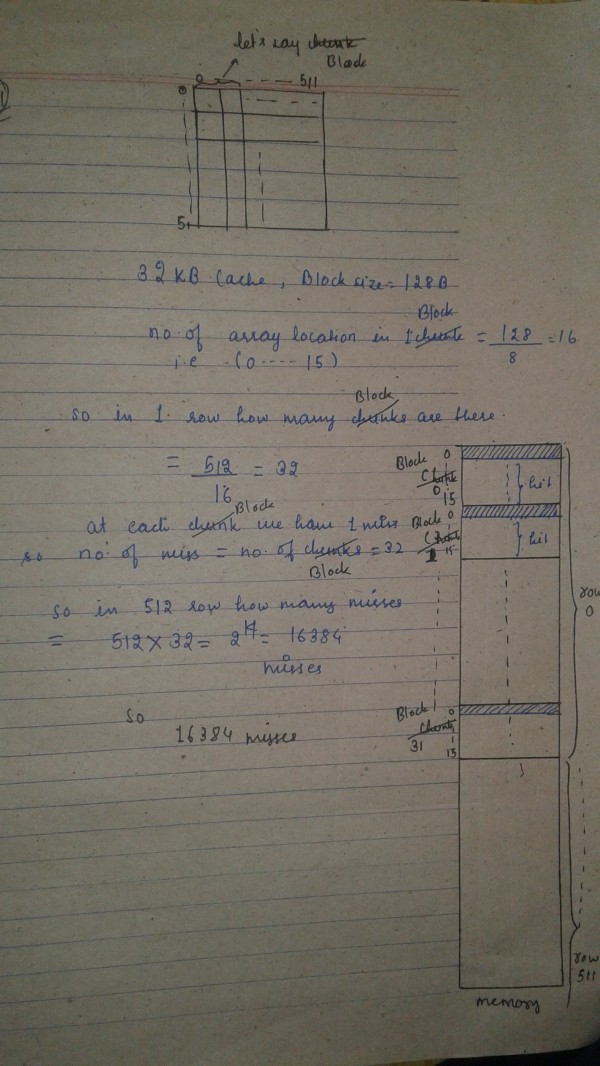 let's say chunk
Block
0 ---- 511
0
51
32 KB Cache, Block size = 128B
Block
no. of array location in 1 chunk = 128/8 = 16
i.e (0 ---- 15)
Block
so in 1 row how many chunks are there.
= 512/16 = 32
Block
at each chunk we have 1 miss
so no. of miss = no. of chunks = 32
Block
so in 512 row how many misses
= 512 × 32 = 2^14 = 16384
misses
so
16384 misses
Block 0
Chunk
0
15
hit
Block 0
Chunk
1 15
hit
row
0
Block 0
Chunk
31
15
row
511
memory